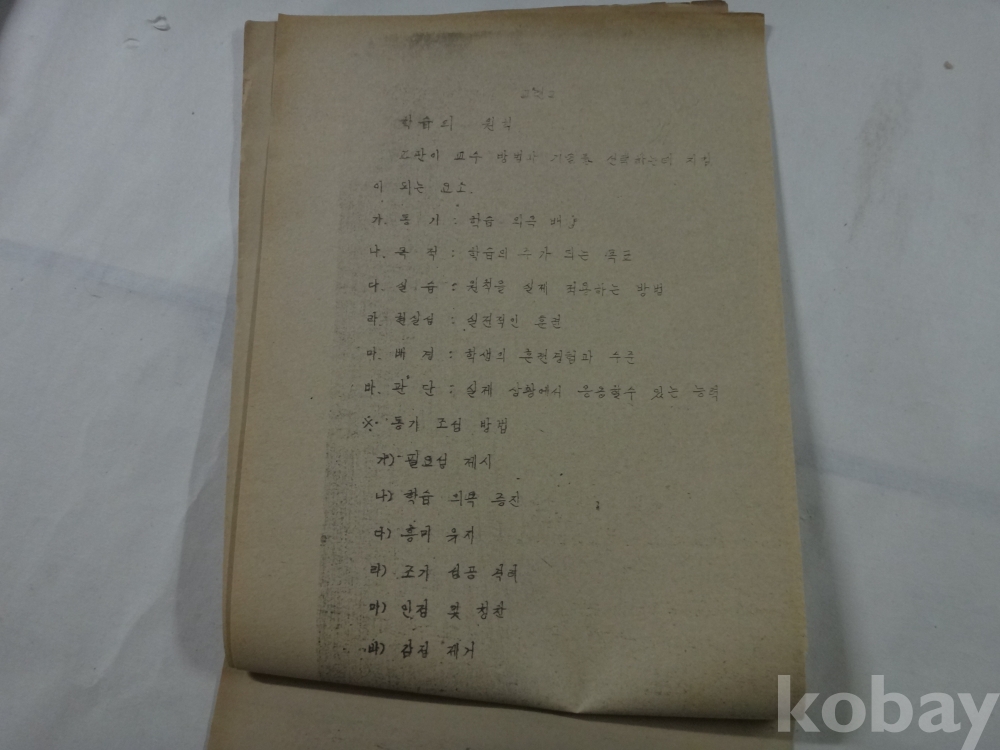 학습의 원칙
교관이 교수 방법과 기술을 선택하는데 지침
이 되는 요소.
가. 동 기 : 학습 의욕 배
나. 목 적 : 학습의 추가 되는 목표
다. 실 습 : 원칙을 실제 적용하는 방법
라. 현실성 : 실전적인 훈련
마. 배 경 : 학생의 훈련경험과 수준
바. 판 단 : 실제 상황에서 응용할수 있는 능력
※. 동기 조성 방법
가) 필요성 제시
나) 학습 의욕 증진
다) 흥미 유지
라) 조기 성공 격려
마) 인정 및 칭찬
바) 감정 제거
kobay